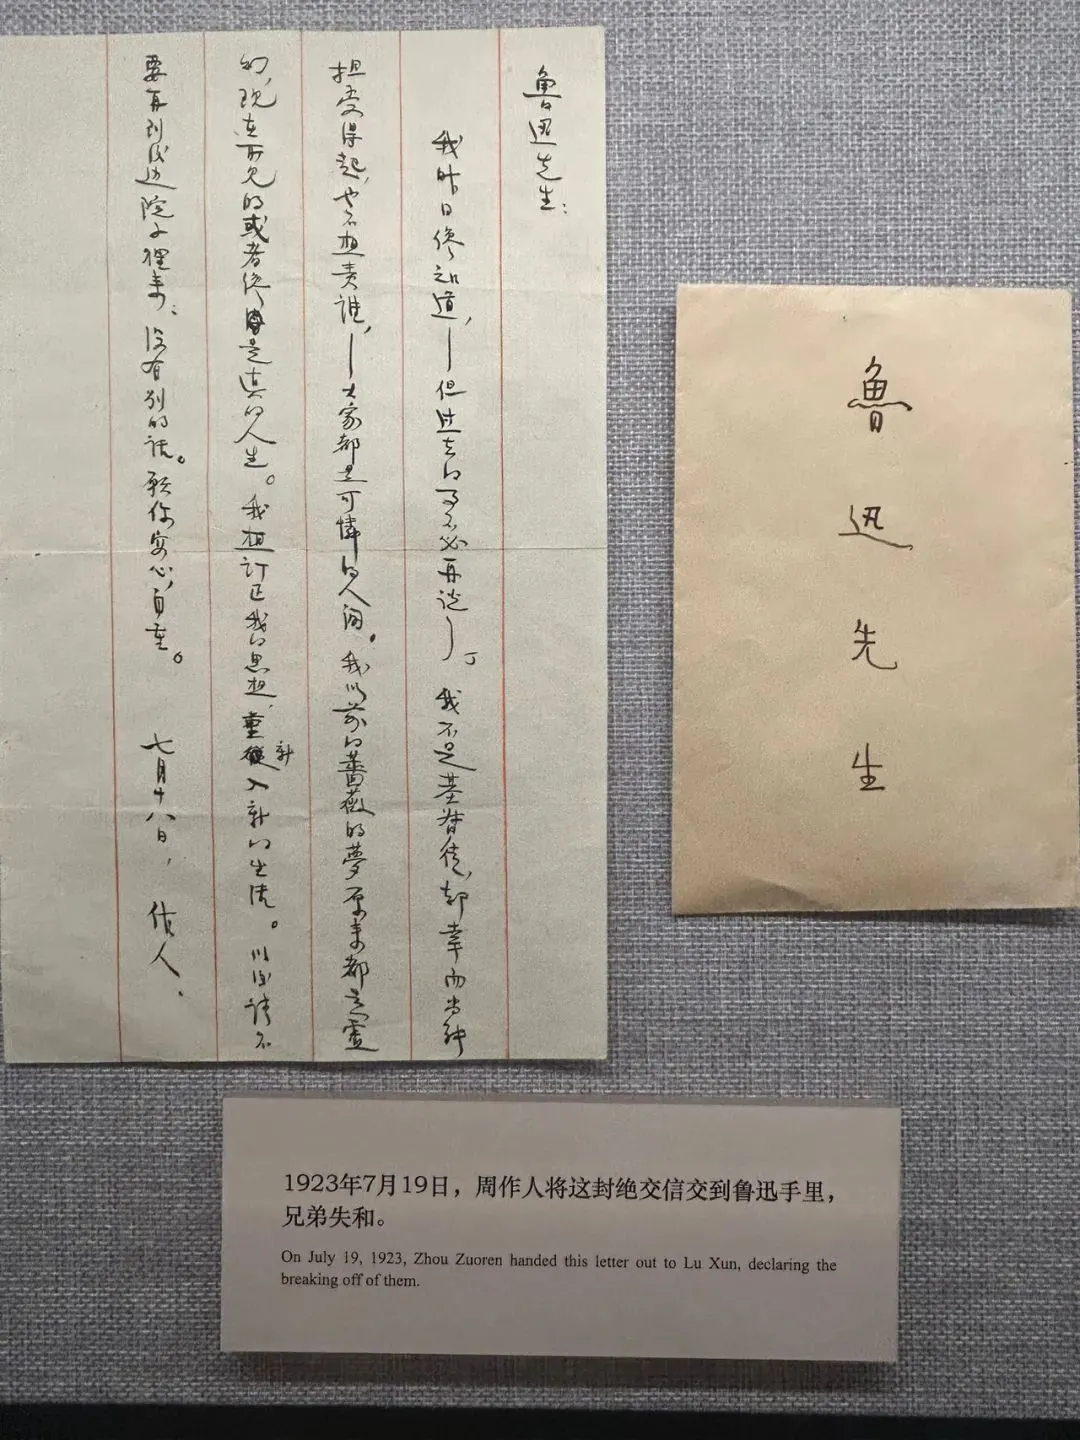 魯迅先生：
我昨日纔知道，——但过去的事不必再说了。我不是基督徒，却幸而尚能
担受得起，也不想责谁，——大家都是可憐的人间。我以前的薔薇的夢原来都是虚
幻，现在所见的或者纔是真的人生。我想订正我的思想，重新入新的生活。以后请不
要再到后边院子裡来，没有别的话。願你安心，自重。
七月十八日，作人。
魯迅先生
1923年7月19日，周作人将这封绝交信交到鲁迅手里，
兄弟失和。
On July 19, 1923, Zhou Zuoren handed this letter out to Lu Xun, declaring the
breaking off of them.